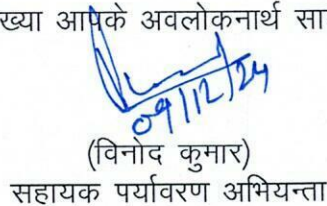 ख्या आपके अवलोकनार्थ सा
09/12/24
(विनोद कुमार)
सहायक पर्यावरण अभियन्ता